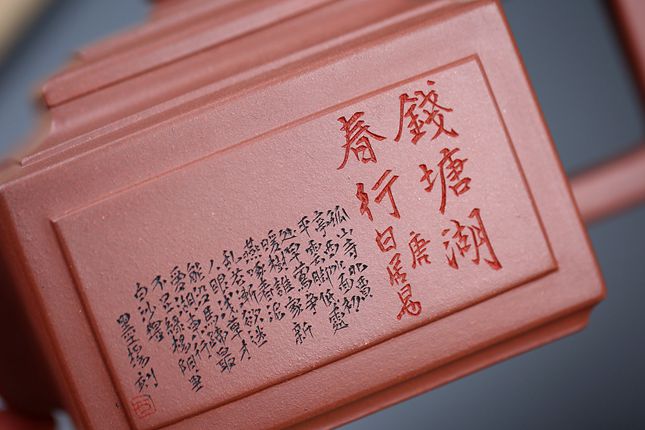 錢塘湖
春行
唐
白居易
孤山寺北賈
亭西水面初
平雲腳低幾
處早鶯爭
暖樹誰家新
燕啄春泥
亂花漸欲迷
人眼淺草才
能沒馬蹄最
愛湖東行
不足綠楊陰里
白沙堤